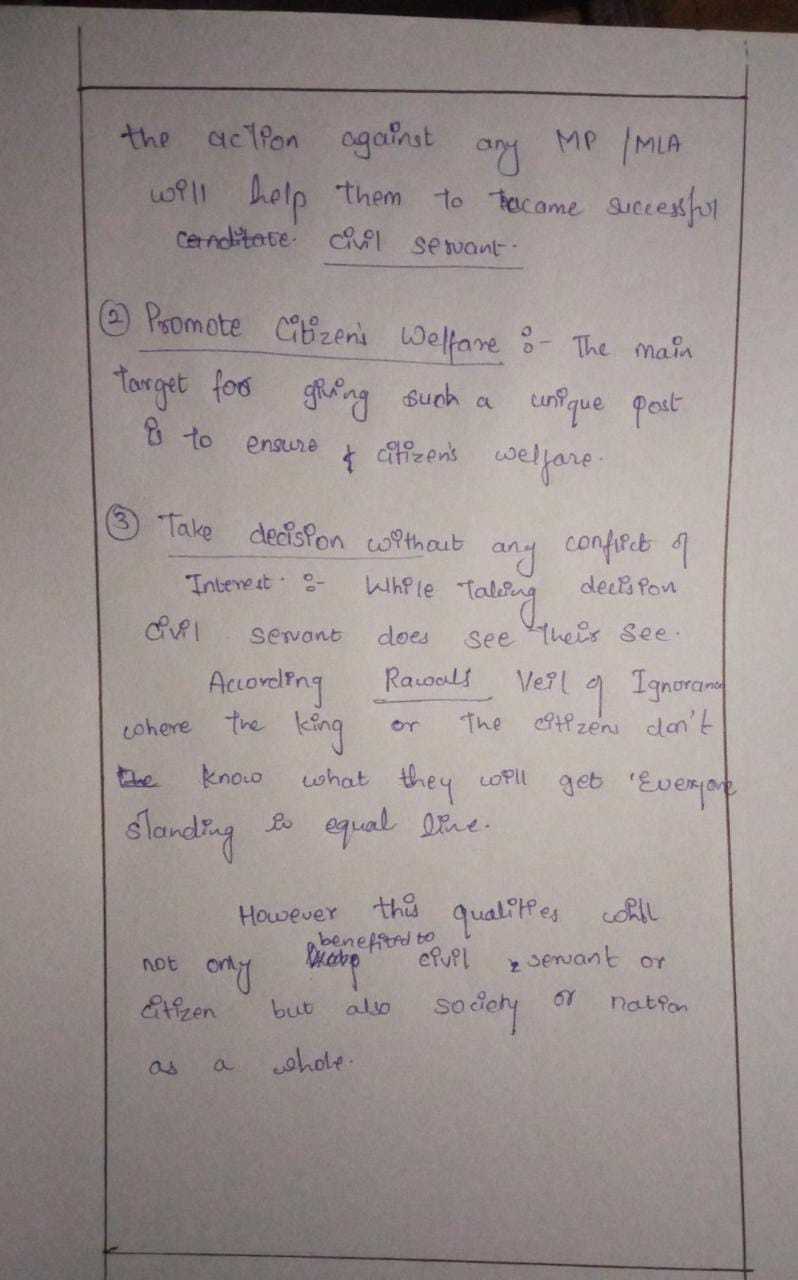 the action against any MP / MLA
will help them to become successful
canditate. civil servant.
② Promote Citizen's Welfare :- The main
Target for giving such a unique post
is to ensure citizen's welfare.
③ Take decision without any conflict of
Interest :- While Taking decision
civil servant does see their see.
According Rawals Veil of Ignorance
where the king or the citizens don't
the know what they will get 'Everyone
standing in equal line.
However this qualities will
benefited to
not only civil servant or
citizen but also society or nation
as a whole.